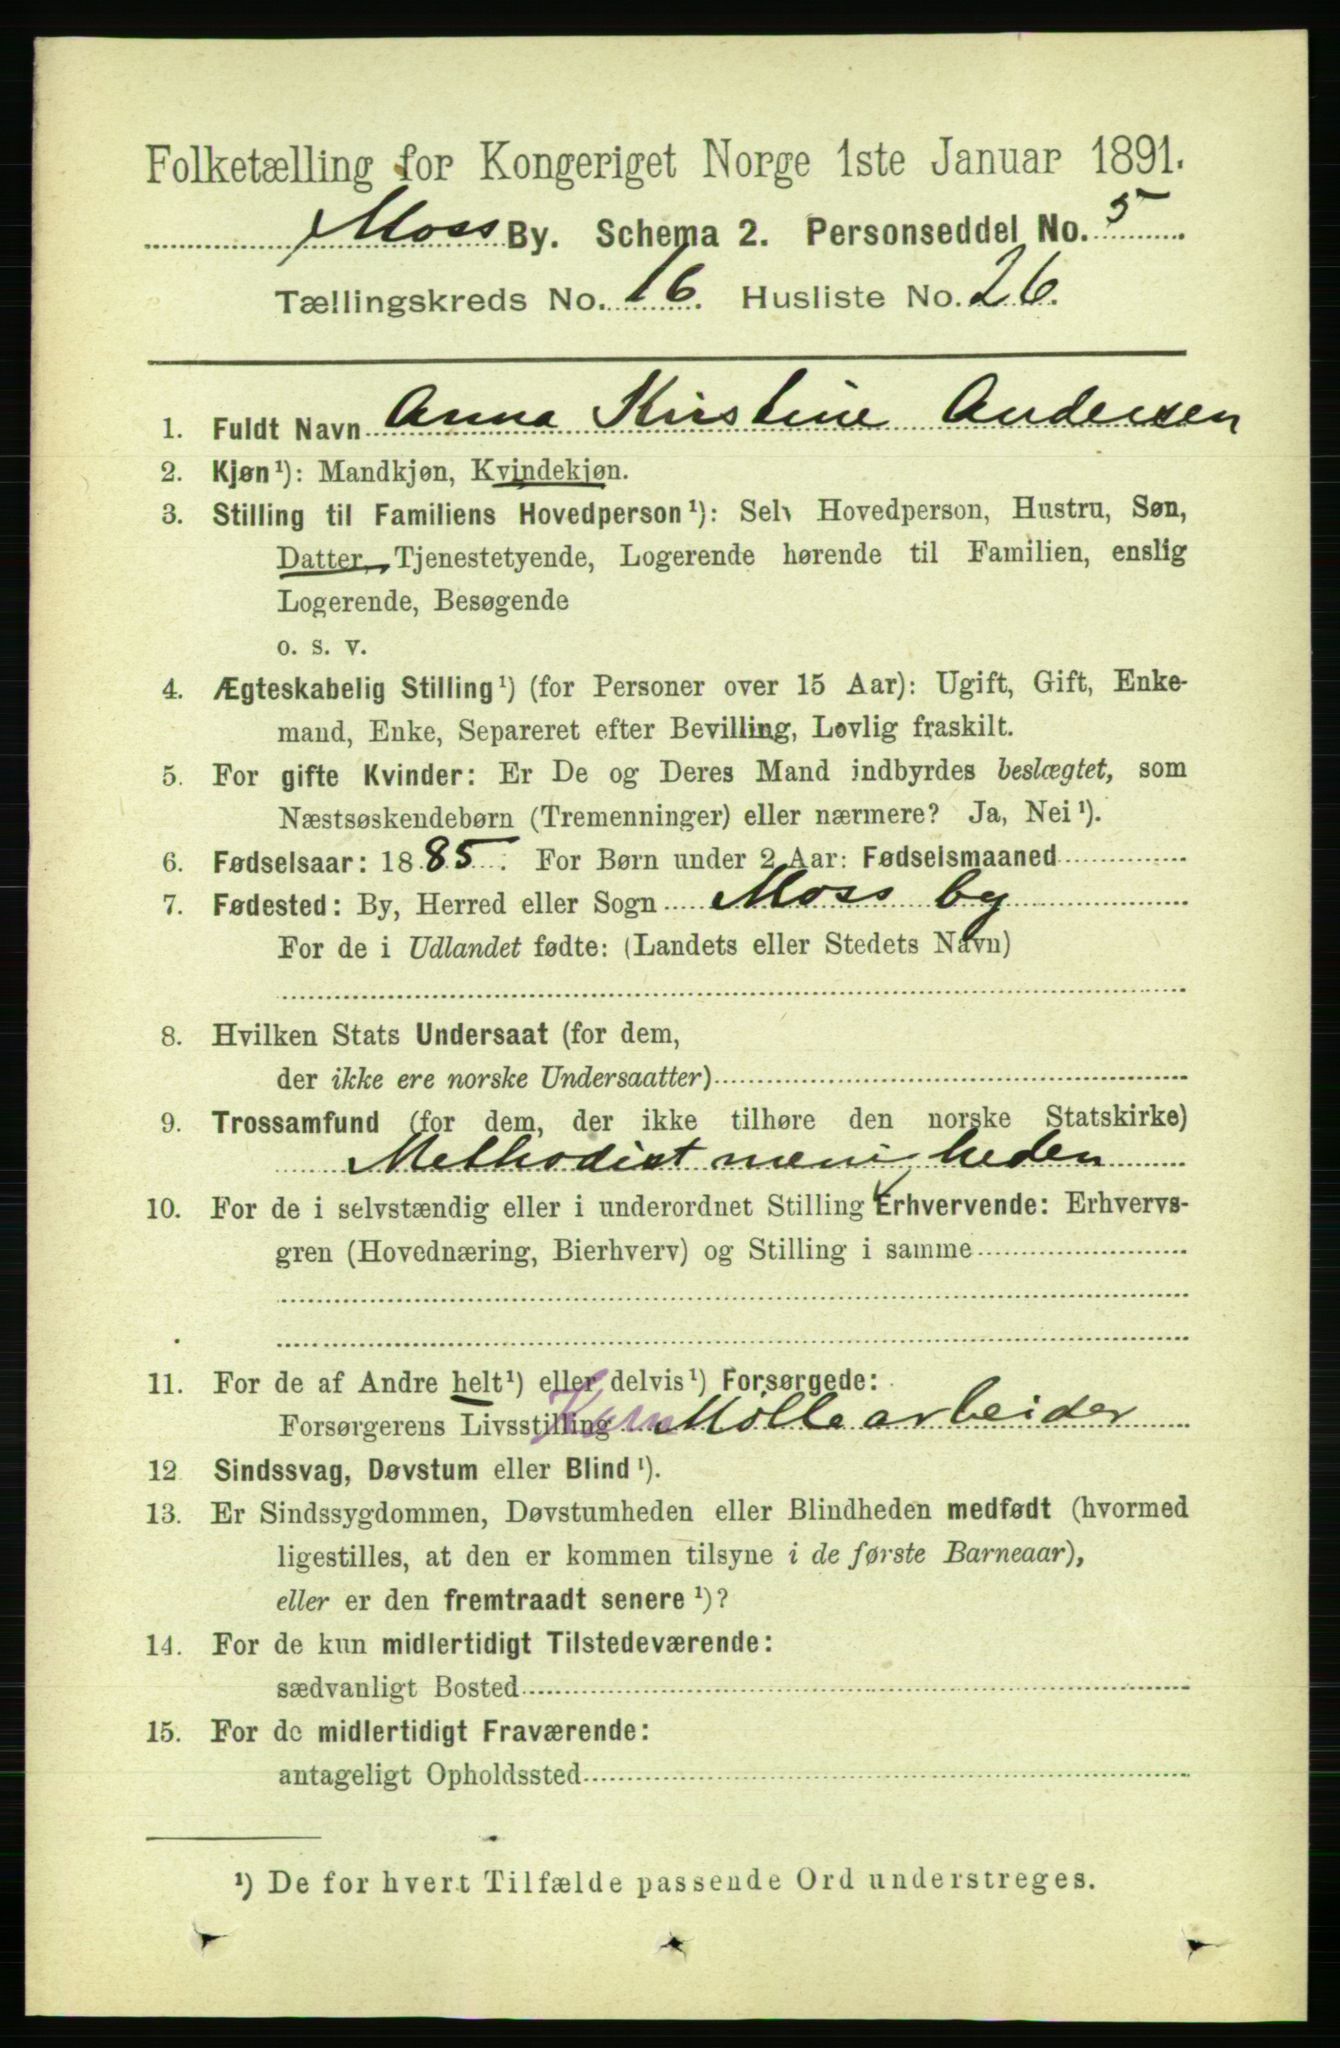 Folketælling for Kongeriget Norge 1ste Januar 1891.
Moss By. Schema 2. Personseddel No. 5
Tællingskreds No. 16. Husliste No. 26.
1. Fuldt Navn Anna Kirstine Andersen
2. Kjøn¹): Mandkjøn, Kvindekjøn.
3. Stilling til Familiens Hovedperson¹): Selv Hovedperson, Hustru, Søn,
Datter, Tjenestetyende, Logerende hørende til Familien, enslig
Logerende, Besøgende
o. s. v.
4. Ægteskabelig Stilling¹) (for Personer over 15 Aar): Ugift, Gift, Enke-
mand, Enke, Separeret efter Bevilling, Lovlig fraskilt.
5. For gifte Kvinder: Er De og Deres Mand indbyrdes beslægtet, som
Næstsøskendebørn (Tremenninger) eller nærmere? Ja, Nei¹).
6. Fødselsaar: 1885. For Børn under 2 Aar: Fødselsmaaned
7. Fødested: By, Herred eller Sogn Moss by
For de i Udlandet fødte: (Landets eller Stedets Navn)
8. Hvilken Stats Undersaat (for dem,
der ikke ere norske Undersaatter)
9. Trossamfund (for dem, der ikke tilhøre den norske Statskirke)
Methodistmenigheden
10. For de i selvstændig eller i underordnet Stilling Erhvervende: Erhvervs-
gren (Hovednæring, Bierhverv) og Stilling i samme
11. For de af Andre helt¹) eller delvis¹) Forsørgede:
Forsørgerens Livsstilling Korn Møllearbeider
12 Sindssvag, Døvstum eller Blind¹).
13. Er Sindssygdommen, Døvstumheden eller Blindheden medfødt (hvormed
ligestilles, at den er kommen tilsyne i de første Barneaar),
eller er den fremtraadt senere¹)?
14. For de kun midlertidigt Tilstedeværende:
sædvanligt Bosted
15. For de midlertidigt Fraværende:
antageligt Opholdssted
¹) De for hvert Tilfælde passende Ord understreges.